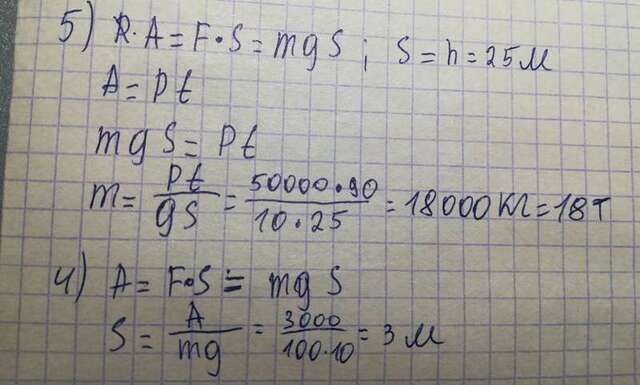 5) R. A = F•S = mgS ; S = h = 25 м
A = Pt
mgS = Pt
m = Pt/gS = 50000•90/10•25 = 18000 кг = 18 т
4) A = F•S = mgS
S = A/mg = 3000/100•10 = 3 м